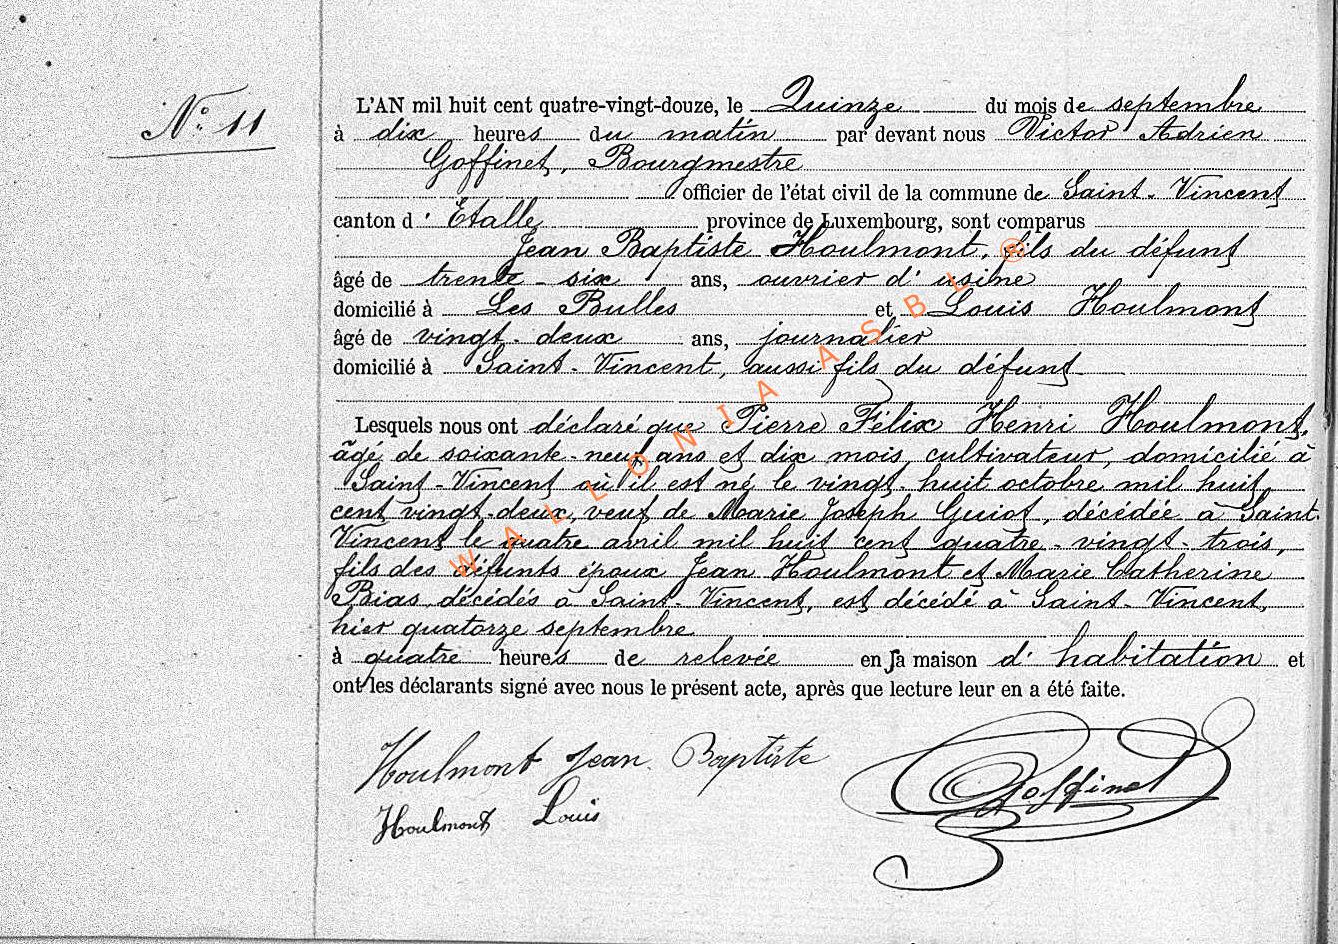 N° 11
L'AN mil huit cent quatre-vingt-douze, le Quinze du mois de septembre
à dix heures du matin par devant nous Victor Adrien
Goffinet, Bourgmestre
officier de l'état civil de la commune de Saint-Vincent
canton d'Etalle province de Luxembourg, sont comparus
Jean Baptiste Houlmont, fils du défunt
âgé de trente-six ans, ouvrier d'usine
domicilié à Les Bulles et Louis Houlmont
âgé de vingt-deux ans, journalier
domicilié à Saint-Vincent, aussi fils du défunt
Lesquels nous ont déclaré que Pierre Félix Henri Houlmont,
âgé de soixante-neuf ans et dix mois, cultivateur, domicilié à
Saint-Vincent où il est né le vingt-huit octobre mil huit
cent vingt-deux, veuf de Marie Joseph Guiot, décédée à Saint-
Vincent le quatre avril mil huit cent quatre-vingt-trois,
fils des défunts époux Jean Houlmont et Marie Catherine
Bias, décédés à Saint-Vincent, est décédé à Saint-Vincent,
hier quatorze septembre
à quatre heures de relevée en sa maison d'habitation et
ont les déclarants signé avec nous le présent acte, après que lecture leur en a été faite.
Houlmont Jean Baptiste
Houlmont Louis
Goffinet
WALLONIA ASBL ®